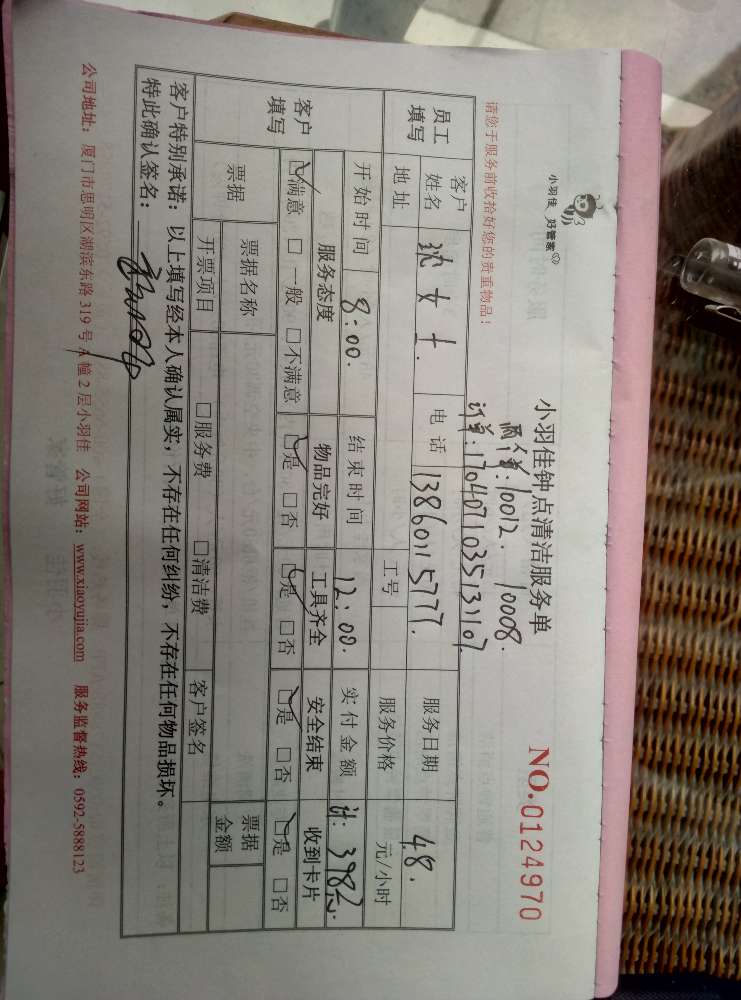 小羽佳 好管家
小羽佳钟点清洁服务单
NO.0124970
两个单:10012. 10008.
请您于服务前收拾好您的贵重物品!
订单:17040711035131107
员工填写 客户姓名 沈女士. 电话 13860115777. 服务日期 4.8.
地址 工号 服务价格 元/小时
客户填写 开始时间 8:00. 结束时间 12:00. 实付金额 计:398元.
服务态度 物品完好 工具齐全 安全结束 收到卡片
☑满意 □一般 □不满意 ☑是 □否 ☑是 □否 ☑是 □否 ☑是 □否
票据 票据名称 票据金额
开票项目 □服务费 □清洁费 客户签名
客户特别承诺:以上填写经本人确认属实,不存在任何纠纷,不存在任何物品损坏。
特此确认签名:
公司地址:厦门市思明区湖滨东路 319 号 A 幢 2 层小羽佳 公司网站:www.xiaoyujia.com 服务监督热线:0592-5888123